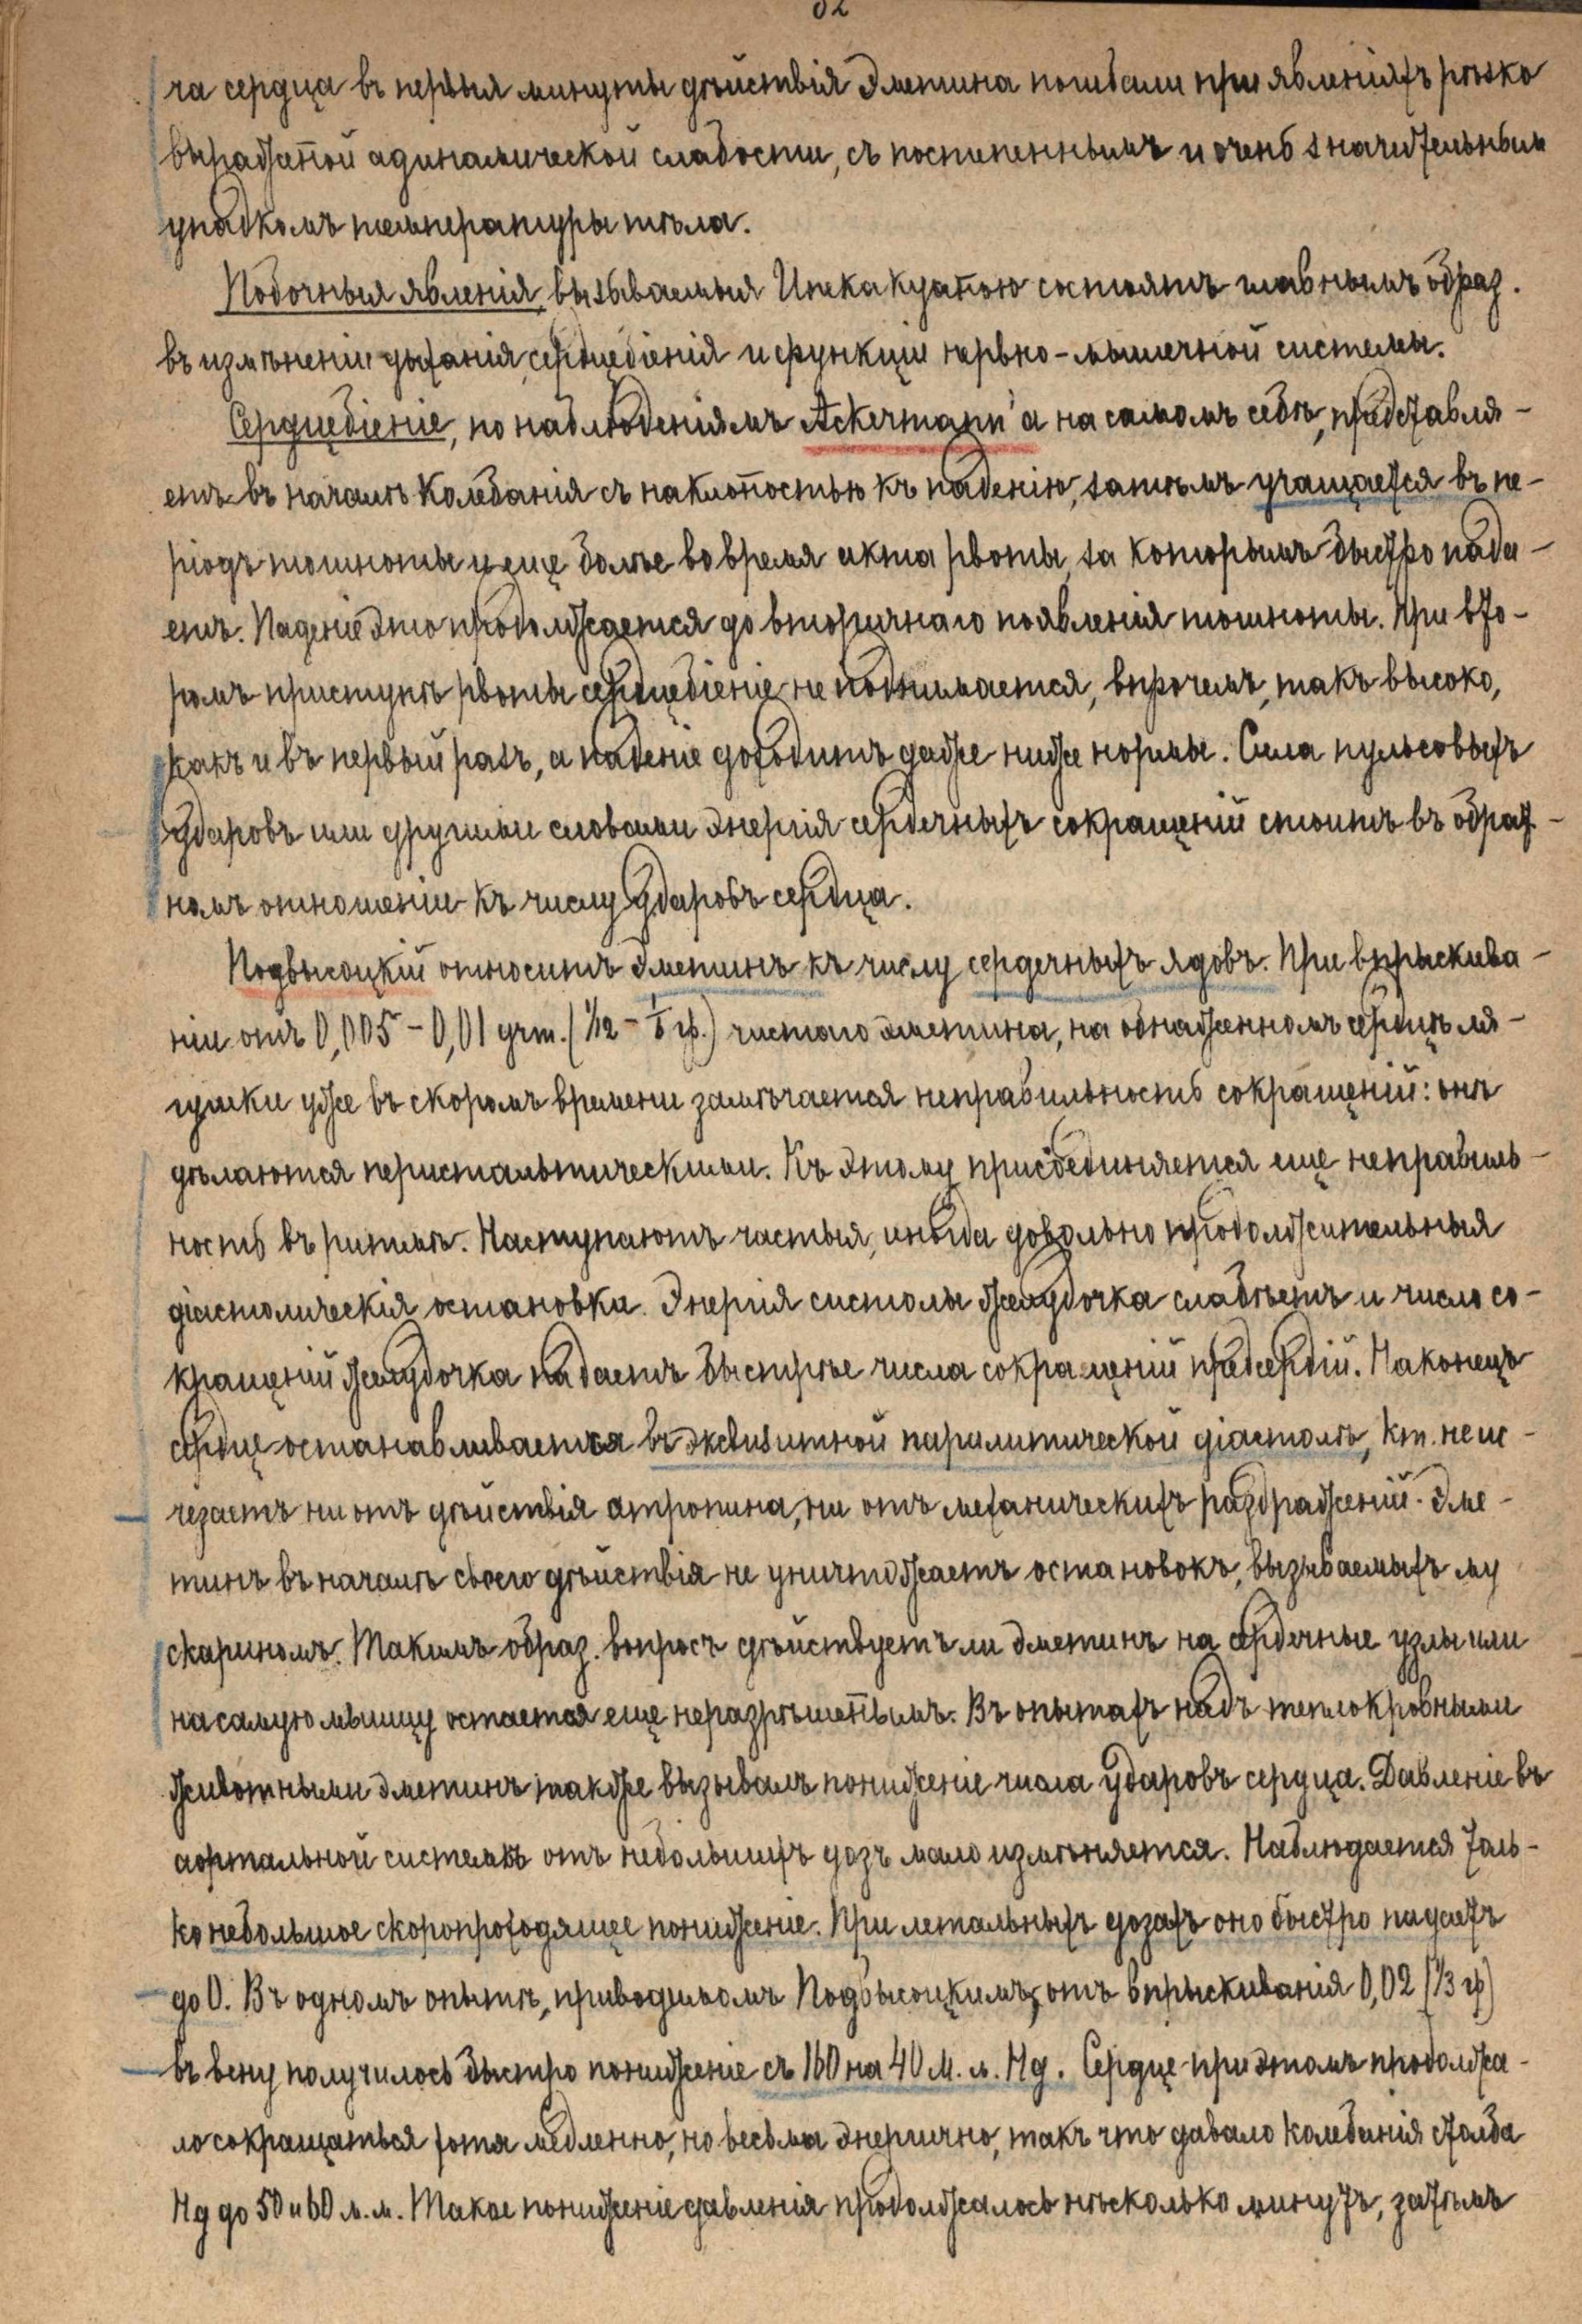 ча сердца въ первыя минуты дѣйствія Эметина погибали при явленіяхъ рѣзко
выраженой адинамической слабости, съ постепеннымъ и очень значительнымъ
упадкомъ температуры тѣла.
Побочныя явленія, вызываемыя Ипекакуаною состоятъ главнымъ образ.
въ измѣненіи дыханія, сердцебіенія и функціи нервно-мышечной системы.
Сердцебіеніе, по наблюденіямъ Ackermann'а на самомъ себѣ, представля-
етъ въ началѣ колебанія съ наклоностью къ паденію, затѣмъ учащается въ пе-
ріодъ тошноты и еще болѣе во время акта рвоты, за которымъ быстро пада-
етъ. Паденіе это продолжается до вторичнаго появленія тошноты. При вто-
ромъ приступѣ рвоты сердцебіеніе не поднимается, впрочемъ, такъ высоко,
какъ и въ первый разъ, а паденіе доходитъ даже ниже нормы. Сила пульсовыхъ
ударовъ или другими словами энергія сердечныхъ сокращеній стоитъ въ обрат-
номъ отношеніи къ числу ударовъ сердца.
Подвысоцкій относитъ Эметинъ къ числу сердечныхъ ядовъ. При впрыскива-
ніи отъ 0,005 - 0,01 grm. (1/12 - 1/6 гр.) чистаго Эметина, на обнаженномъ сердцѣ ля-
гушки уже въ скоромъ времени замѣчается неправильность сокращеній: онѣ
дѣлаются перистальтическими. Къ этому присоединяется еще неправиль-
ность въ ритмѣ. Наступаютъ частыя, иногда довольно продолжительныя
діастолическія остановки. Энергія систолы желудочка слабѣетъ и число со-
кращеній желудочка падаетъ быстрѣе числа сокращеній предсердій. Наконецъ
сердце останавливается въ эксвизитной паралитической діастолѣ, кт. не ис-
чезаетъ ни отъ дѣйствія атропина, ни отъ механическихъ раздраженій. Эме-
тинъ въ началѣ своего дѣйствія не уничтожаетъ остановокъ, вызываемыхъ му
скариномъ. Такимъ образ. вопросъ дѣйствуетъ ли эметинъ на сердечные узлы или
на самую мышцу остается еще неразрѣшенымъ. Въ опытахъ надъ теплокровными
животными эметинъ также вызывалъ пониженіе числа ударовъ сердца. Давленіе въ
аортальной системѣ отъ небольшихъ дозъ мало измѣняется. Наблюдается толь-
ко небольшое скоропроходящее пониженіе. При летальныхъ дозахъ оно быстро падаетъ
до 0. Въ одномъ опытѣ, приводимомъ Подвысоцкимъ, отъ впрыскиванія 0,02 (1/3 гр)
въ вену получилось быстро пониженіе съ 160 на 40 м. м. Hg. Сердце при этомъ продолжа-
ло сокращаться хотя медленно, но весьма энергично, такъ что давало колебанія столба
Hg до 50 и 60 м. м. Такое пониженіе давленія продолжалось нѣсколько минутъ, затѣмъ